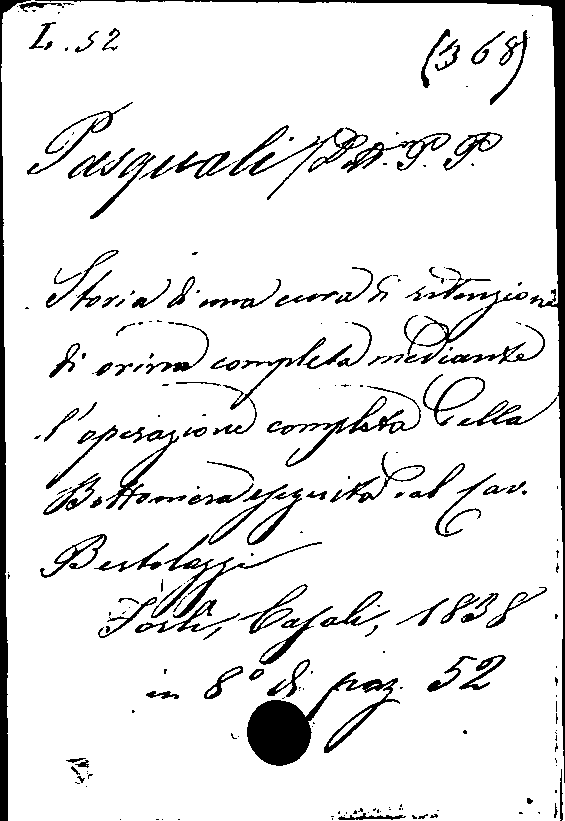 L. 52
(368)
Pasquali / P. P.
Storia di una cura di ritenzione
di orina completa mediante
l'operazione completa della
Bottoniera eseguita dal Cav.
Bertolazzi
Forlì, Casali, 1838
in 8° di pag. 52